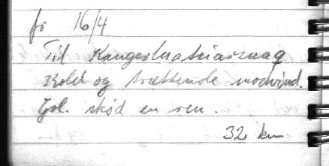 fr 16/4
Til Kangerluatsiarssuaq
Kold og trættende modvind.
Gol. skød en ren.
32 km